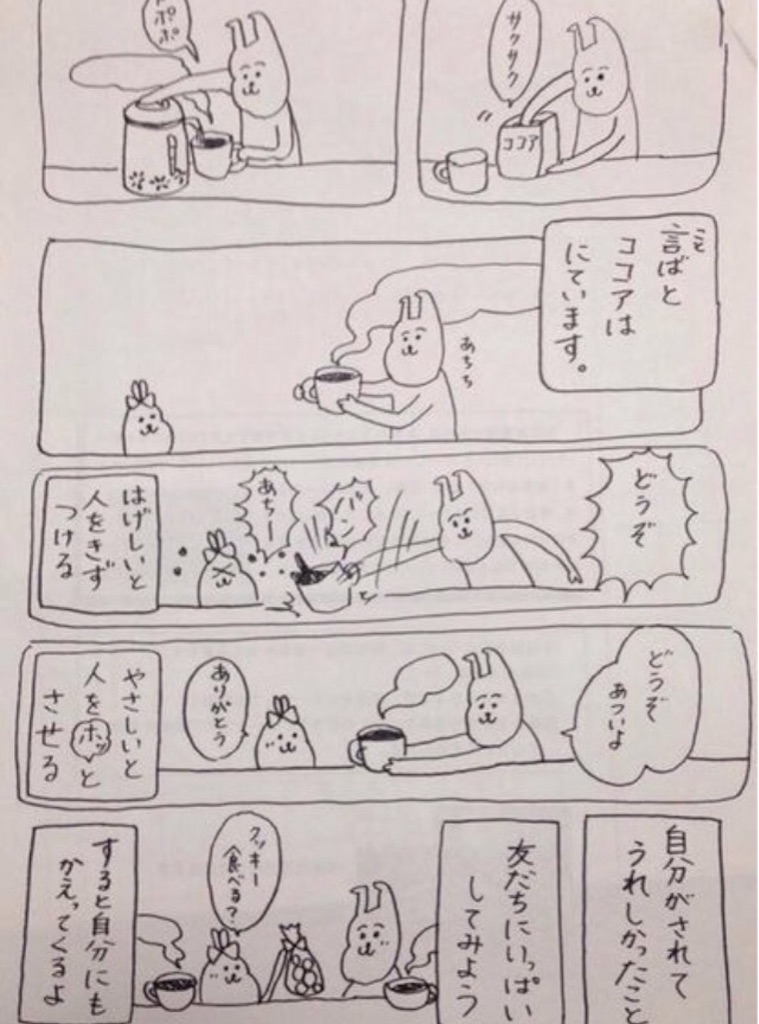 サクサク
ココア
ポポ
言ばと
ココアは
にています。
あちち
どうぞ
バン
あちー
はげしいと
人をきず
つける
どうぞ
あついよ
ありがとう
やさしいと
人をホッと
させる
自分がされて
うれしかったこと
友だちにいっぱい
してみよう
クッキー
食べる？
すると自分にも
かえってくるよ